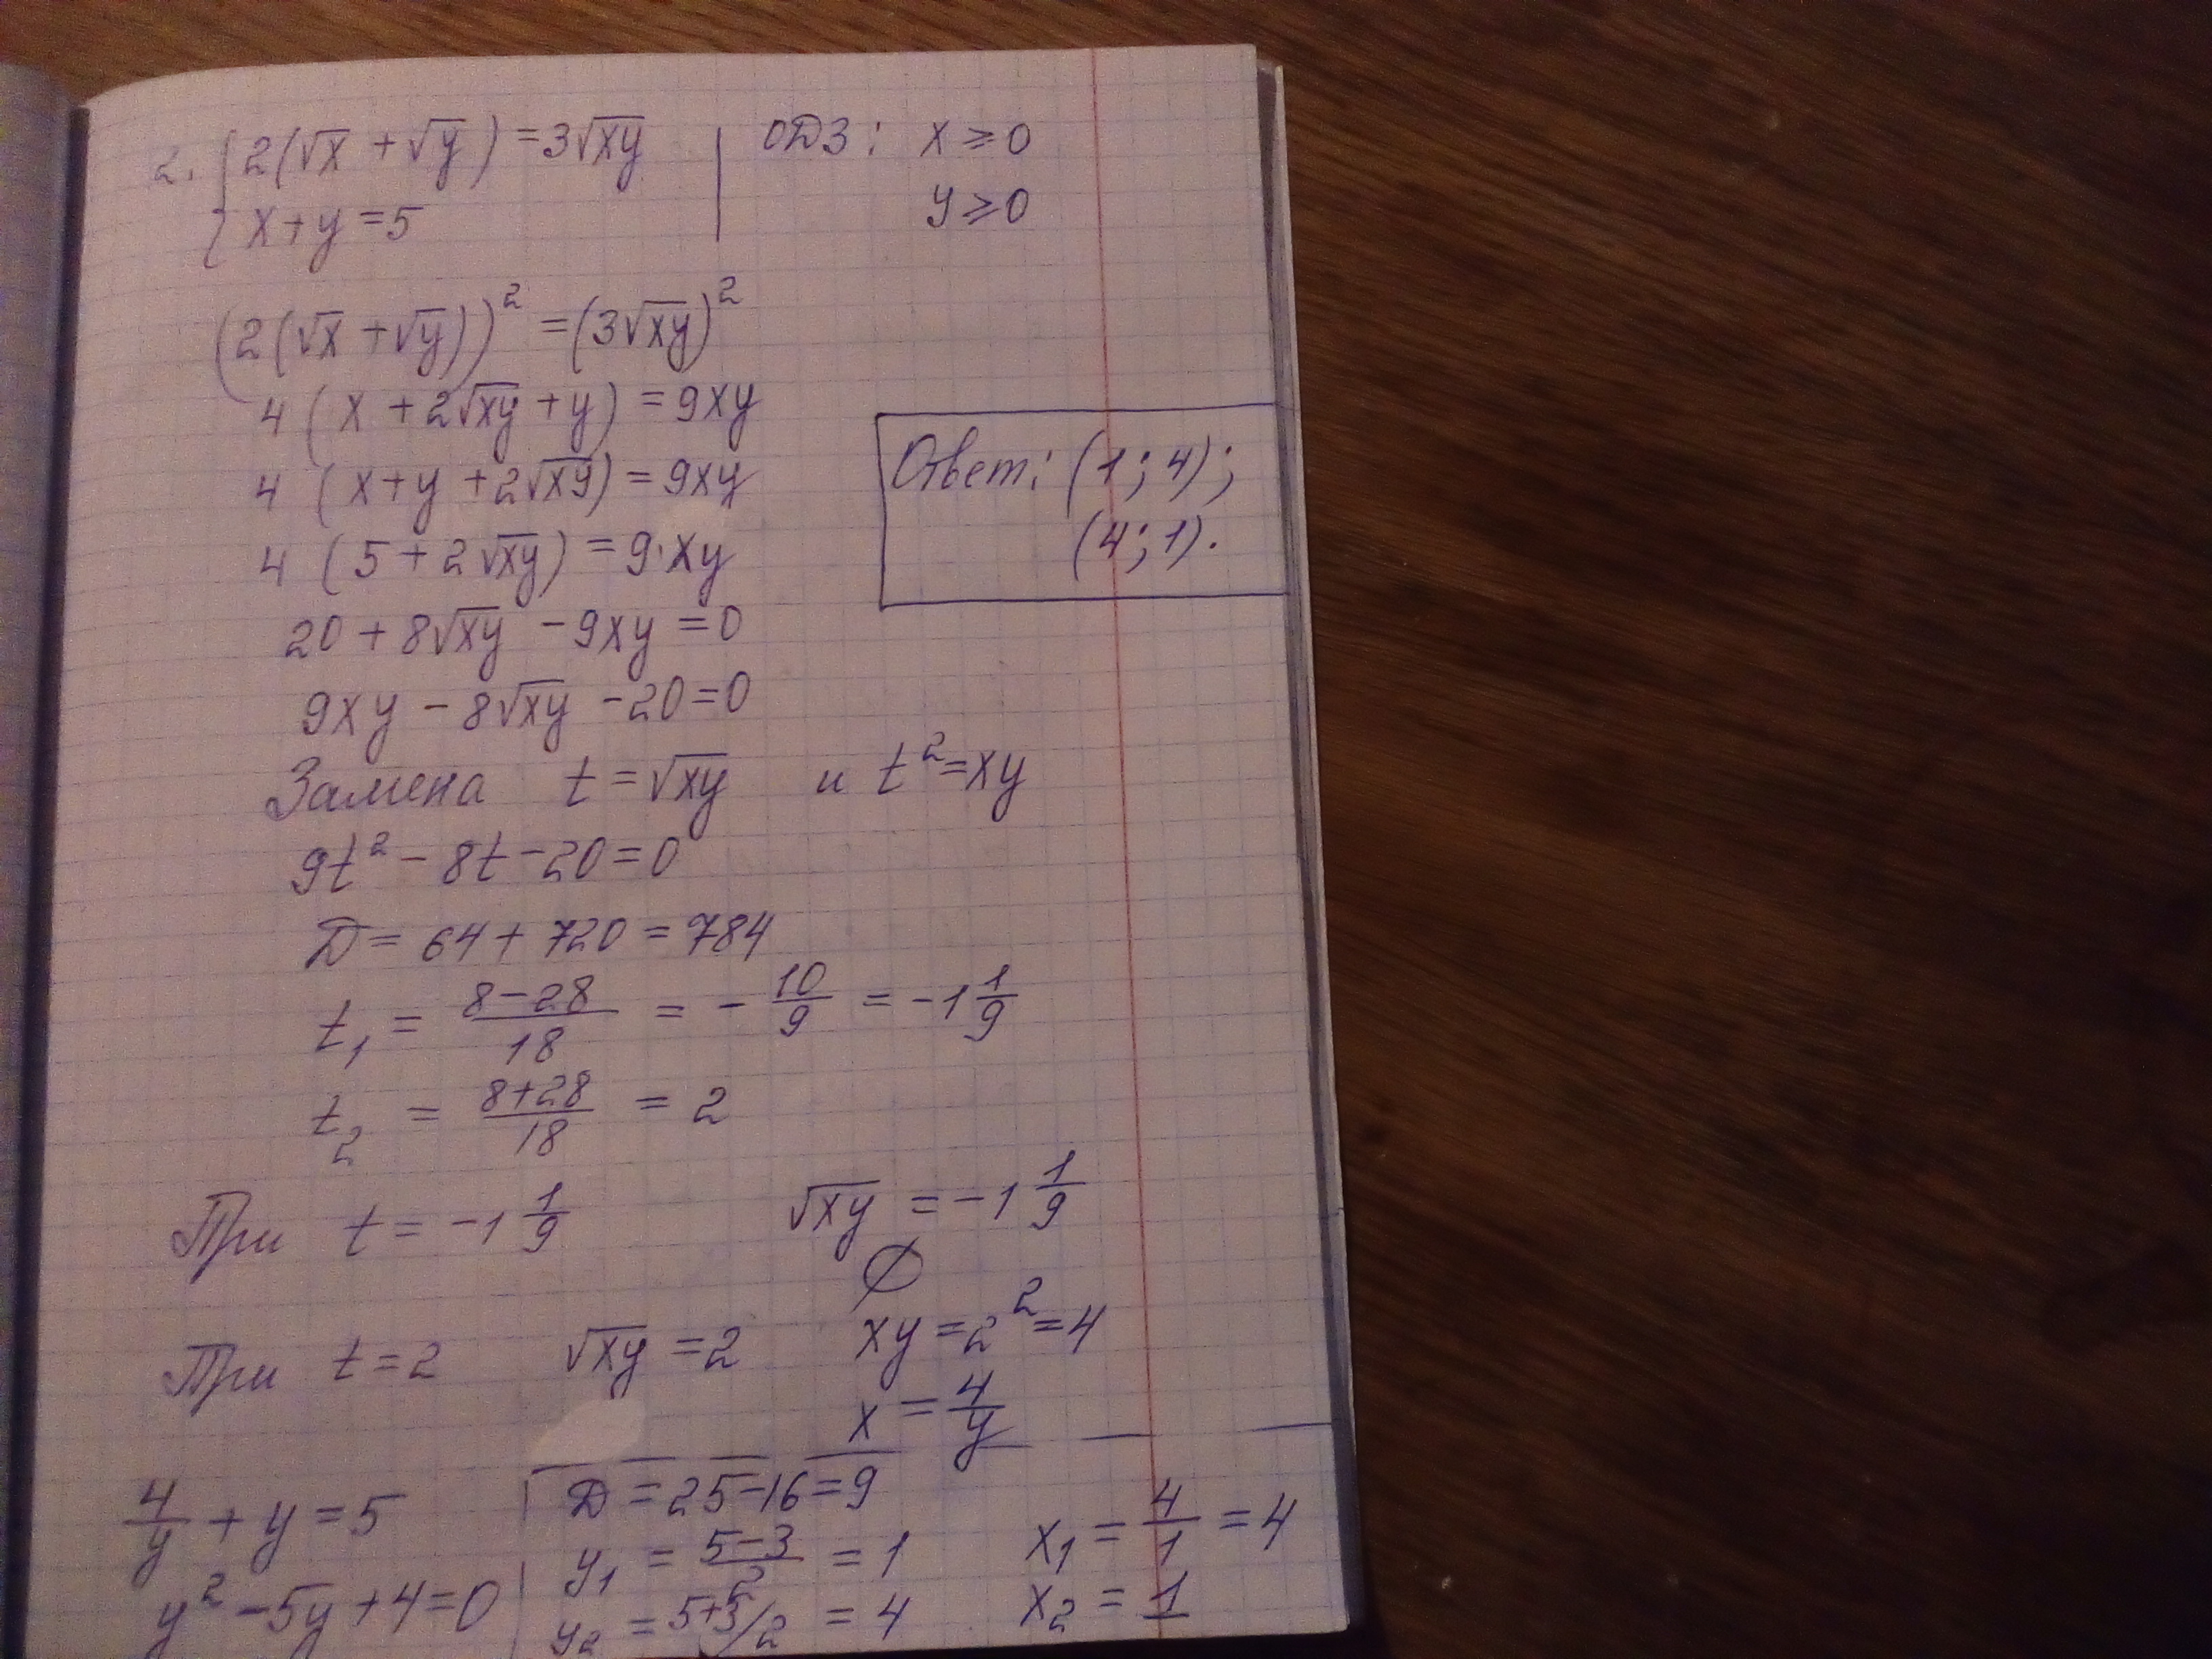 2. { 2(√x + √y) = 3√xy
x + y = 5
ОДЗ: x ≥ 0
y ≥ 0
(2(√x + √y))² = (3√xy)²
4 (x + 2√xy + y) = 9xy
4 (x + y + 2√xy) = 9xy
4 (5 + 2√xy) = 9·xy
20 + 8√xy - 9xy = 0
9xy - 8√xy - 20 = 0
Замена t = √xy и t² = xy
9t² - 8t - 20 = 0
D = 64 + 720 = 784
t₁ = (8-28)/18 = - 10/9 = -1 1/9
t₂ = (8+28)/18 = 2
При t = -1 1/9 √xy = -1 1/9
∅
При t = 2 √xy = 2 xy = 2² = 4
x = 4/y
4/y + y = 5
y² - 5y + 4 = 0
D = 25 - 16 = 9
y₁ = (5-3)/2 = 1
y₂ = 5+3/2 = 4
x₁ = 4/1 = 4
x₂ = 1
Ответ: (1; 4);
(4; 1).